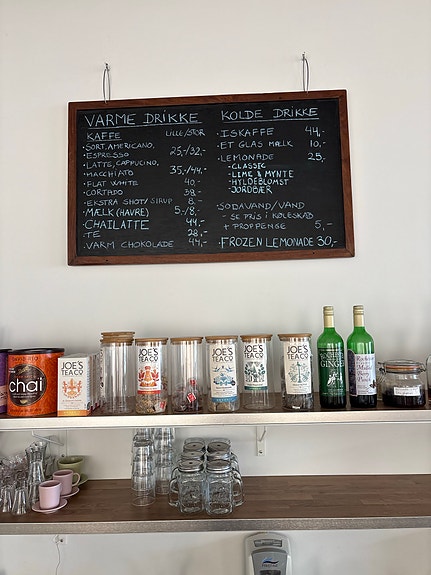 VARME DRIKKE
KAFFE LILLE/STOR
• SORT, AMERICANO,
ESPRESSO 25,-/32,-
• LATTE, CAPPUCINO,
MACCHIATO 35,-/44,-
• FLAT WHITE 40,-
• CORTADO 38,-
• EKSTRA SHOT/SIRUP 8,-
• MÆLK (HAVRE) 5,-/8,-
• CHAILATTE 44,-
• TE 28,-
• VARM CHOKOLADE 44,-
KOLDE DRIKKE
• ISKAFFE 44,-
• ET GLAS MÆLK 10,-
• LEMONADE 25,-
- CLASSIC
- LIME & MYNTE
- HYLDEBLOMST
- JORDBÆR
• SODAVAND/VAND
- SE PRIS I KØLESKAB
+ PROPPENGE 5,-
• FROZEN LEMONADE 30,-
chai
JOE'S
TEA CO
JOE'S
TEA CO
JOE'S
TEA CO
JOE'S
TEA CO
JOE'S
TEA CO
GINGER